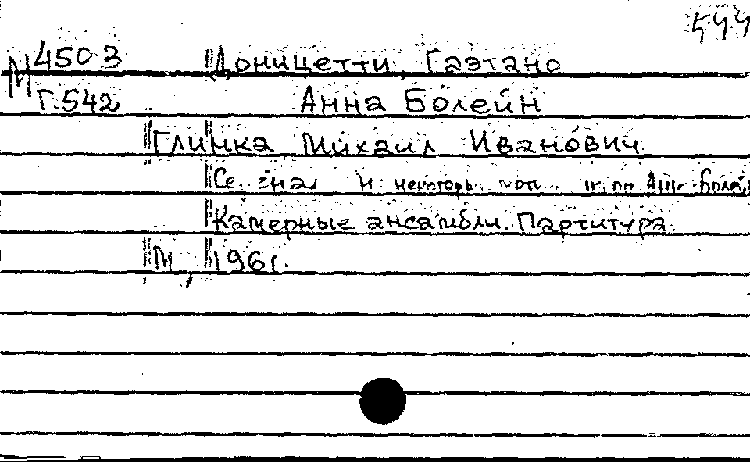 544
М 4503 Доницетти, Гаэтано
Г.542 Анна Болейн
Глинка Михаил Иванович
и Анне Болей
Камерные ансамбли. Партитура.
М., 1961.